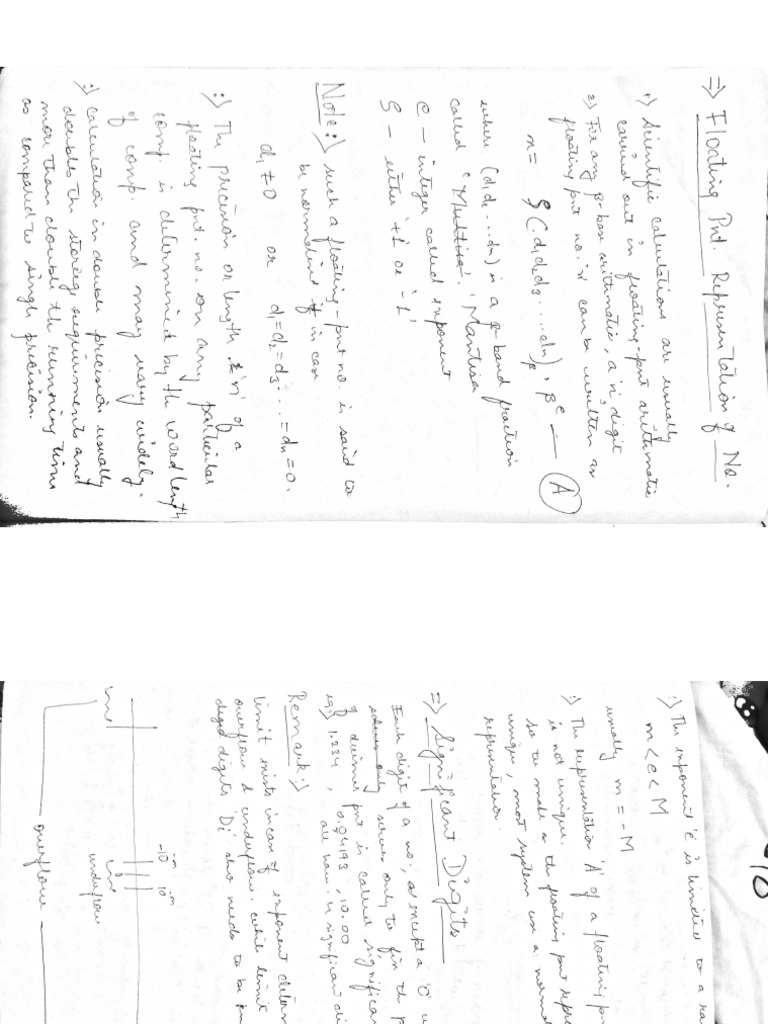 => Floating Pnt. Representation of No.
1) Scientific calculations are usually
carried out in floating-pnt aritmatic
2) For any β-base aritmatic, a 'n' digit
floating pnt no. 'x' can be written as
x = ξ(.d1d2d3....dn)β, β^e — (A)
where (d1d2....dn) is a β-based fraction
called 'Mantisa'
e – integer called exponent
ξ – either '+1' or '-1'
Note:> such a floating-pnt no. is said to
be normalized if in case
d1 ≠ 0 or d1=d2=d3....=dn=0.
:> The precision or length 'n' of a
floating pnt. no. on any particular
comp. is determined by the word length
of comp. and may vary widely.
:> Calculation in double precision usually
doubles the storage requirements and
more than double the running time
as compared to single precision.
:> The exponent 'e' is limited to a
m<e<M
usually m = -M
:> The representation 'A' of a floating
is not unique.
so to make the floating pnt
unique, most system use a
representation.
=> Significant Digits
Each digit of a no., except a '0'
serves only to fix the
of decimal pnt is called
eg:> 1.234, 0.04193, 10.00
are now 4 significant
Remark:>
limit exists in case of exponent
overflow & underflow. while limit
digits 'Di' also needs to be
-m -m
-10 10
underflow
overflow